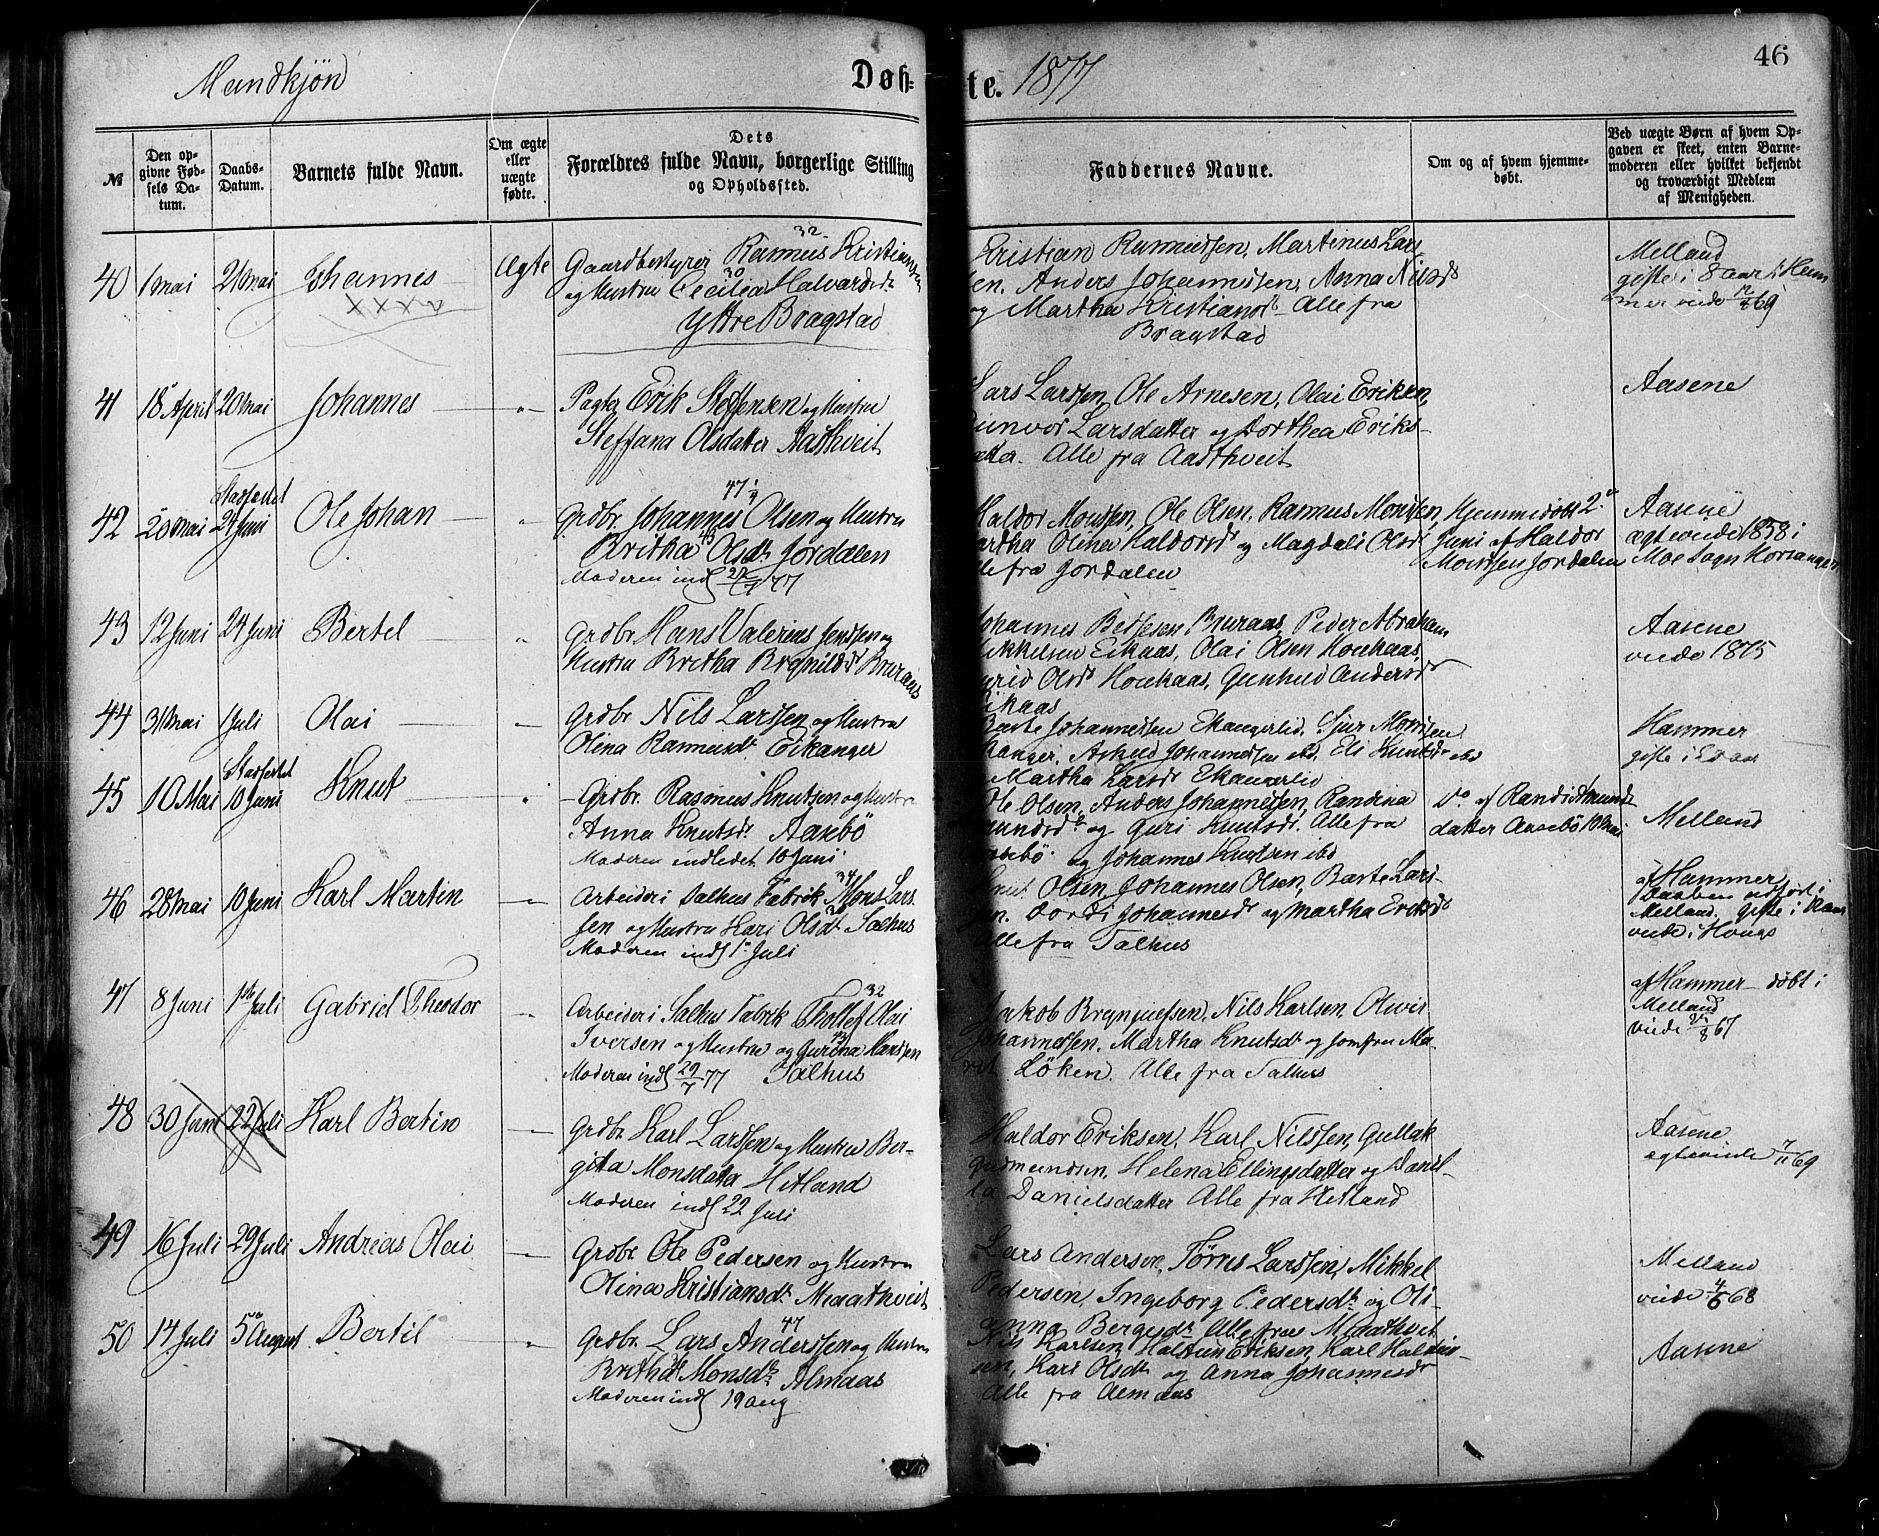 Mandkjøn
Døb-
te. 1877
46
№
Den op-
givne Fød-
sels Da-
tum.
Daabs-
Datum.
Barnets fulde Navn.
Om ægte
eller
uægte
fødte.
Dets
Forældres fulde Navn, borgerlige Stilling
og Opholdssted.
Faddernes Navne.
Om og af hvem hjemme-
døbt.
Ved uægte Børn af hvem Op-
gaven er skeet, enten Barne-
moderen eller hvilket bekjendt
og troværdigt Medlem
af Menigheden.
40 1 mai 21 mai Johannes Ægte
32
Gaardbestyrer Rasmus Kristiansen
30
og Hustru Cecilia Halvardsdt
Ytre Bragstad
Kristian Rasmussen, Martinus Lars
sen. Anders Johannessen, Anna Nilsdt
og Martha Kristiansdt Alle fra
Bragstad
Melland
gifte i 8 aar i Ham
mer viede 12/6 69
41 18 April 20 Mai Johannes
Pagter Erik Steffensen og Hustru
Steffana Olsdatter Aasthveit
Lars Larssen, Ole Arnesen, Olai Eriksen,
Gunvor Larsdatter og Dorthea Eriks-
datter. Alle fra Aasthveit
Aasene
42 20 Mai Stadfestet
24 Juni Ole Johan
47 1/4
Grdbr. Johannes Olsen og Hustru
43
Britha Olsdt Jordalen
Moderen indl 22/7 77
Haldor Monssen, Ole Olsen, Rasmus Monsen,
Martha Olina Haldorsdt og Magdali Olsdt
Alle fra Jordalen
Hjemmedøbt 2
Juni af Haldor
Monssen Jordalen
Aasene
ægteviede 1858 i
Moe Sogn Hosanger
43 12 Juni 24 Juni Bertel
Grdbr Hans Valerius Jenssen og
Hustru Britha Brynildsdt Bruraas
Johannes Bruraas, Peder Abraham
Mikkelsen Eikaas, Olai Olsen Houkaas,
Olsdt Houkaas, Gunhild Andersdt
Eikaas
Aasene
viede 1875
44 31 Mai 1 Juli Olai
Grdbr Nils Larssen og Hustru
Olina Rasmusdt Eikanger
Baste Johannessen Ekangerlid, Sjur Monssen
Ekanger, Johannessen ibd, Eli Knutsdt ibd
Martha Larsdt Ekangerlid
Hammer
gifte i aar
45 10 Mai Stadfestet
10 Juni Knut
Grdbr. Rasmus Knutsen og Hustru
Anna Knutsdt Aasebö
Moderen indledet 10 Juni
Ole Olsen, Anders Johannessen, Randina
Amundsdt og Guri Knutsdt. Alle fra
Aasebö. og Johannes Knutsen ibd
Do af Randi Amunds
datter Aasebö 10 Mai
Melland
46 28 Mai 10 Juni Karl Martin
34
Arbeider i Salhus Fabrik Mons Lars
sen og Hustru Kari Olsdt Salhus
Moderen indl 1 Juli
Knut Olsen, Johannes Olsen, Baste Lars-
sen. Dordi Johannesdt og Martha Eriksdt
Alle fra Salhus
af Hammer
Daaben udført i
Melland. gifte i
viede i Hougs
47 8 Juni 1ste Juli Gabriel Theodor
32
Arbeider i Salhus Fabrik Thollef Olai
Iversen og Hustru og Gurina Hanssen
Moderen indl 29/7 77 Salhus
Jakob Brynjuelfsen, Nils Karlsen, Oliver
Johannessen, Martha Knutsdt og Jomfru Ma-
rit Löken. Alle fra Salhus
af Hammer døbt i
Melland
viede 67
48 30 Juni 22 Juli Karl Bertin
Grdbr. Karl Larssen og Hustru Ber-
gita Monsdatter Hitland
Moderen indl 22 Juli
Haldor Eriksen, Karl Nilssen, Gullak
Gudmundsen, Helena Ellingsdatter og Danil-
la Danielsdatter Alle fra Hetland
Aasene
ægteviede 7/11 69
49 16 Juli 29 Juli Andreas Olai
Grdbr Ole Pedersen og Hustru
Olina Kristiansdt Mjaathveit
Lars Andersen, Tørres Larssen, Mikkel
Pedersen, Ingeborg Pedersdt og Oli-
anna Bergesdt. Alle fra Mjaathveit
Melland
viede 4/6 68
50 14 Juli 5 August Bertil
47
Grdbr. Lars Anderssen og Hustru
Britha Monsdt Almaas
Moderen indl 19 aug
Nils Karlsen, Halstein Eriksen, Karl Haldor-
sen, Kari Olsdt og Anna Johannesdt
Alle fra Almaas
Aasene